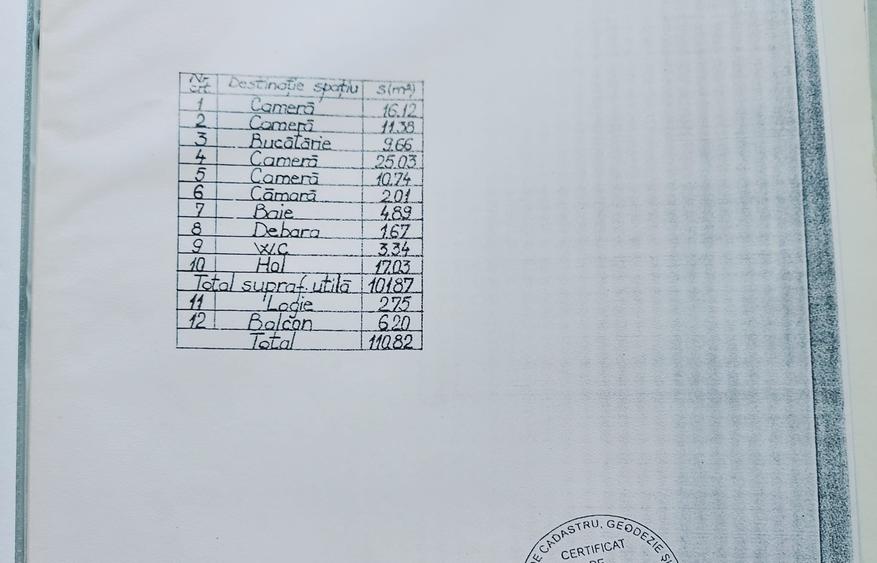 Nr. crt. Destinație spațiu S(m²)
1 Cameră 16.12
2 Cameră 11.38
3 Bucătărie 9.66
4 Cameră 25.03
5 Cameră 10.74
6 Cămară 2.01
7 Baie 4.89
8 Debara 1.67
9 W.C 3.34
10 Hol 17.03
Total supraf. utilă 101.87
11 Logie 2.75
12 Balcon 6.20
Total 110.82
DE CADASTRU, GEODEZIE ȘI
CERTIFICAT
DE